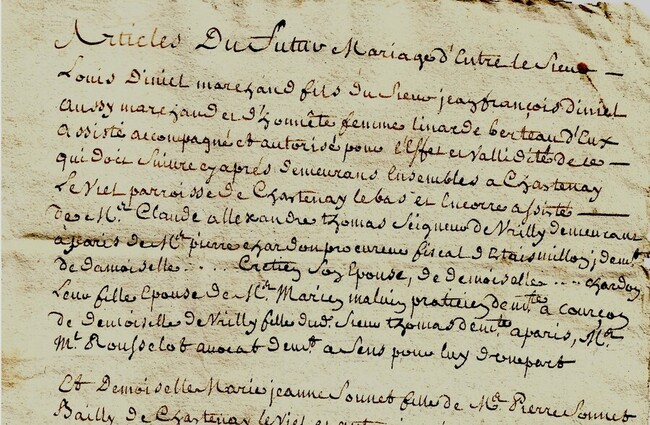 Articles Du futur Mariage d'Entre le Sieur
Louis Diniel marchand fils du Sieur jean françois diniel
aussy marchand et d'honnête femme linarde berteau d'Eux
assisté accompagné et autorisé pour l'Effet et vallidité de ce
qui doit suivre cy après demeurans Ensembles a Chastenay
Le Viel parroisse de Chastenay le bas et Encorre assisté
de Mr. Claude allexandre thomas Seigneur de Vrilly demeurant
à paris de Mr. pierre chardon procureur fiscal d'Etaismillon j demt.
de damoiselle .... Cretien Son Epouse, de demoiselle .... chardon
leur fille Epouse de Mr. Marien malien praticien demt. a courçon
de demoiselle de Vrilly fille dud. Sieur thomas demt. a paris, Mr.
Mr. Rousselot avocat demt. a Sens pour luy d'une part
Et Demoiselle Marie jeanne Sonnet fille de Me. Pierre Sonnet
Bailly de Chastenay le Viel et